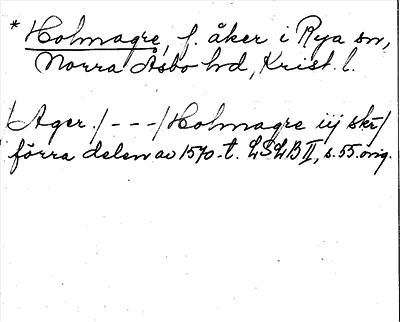 * Holmagre, f. åker i Rya sn,
Norra Åsbo hd, Krist. l.
/Ager./ - - - /Holmagre iij skr/
förra delen av 1570-t. LSLB II, s. 55. orig.